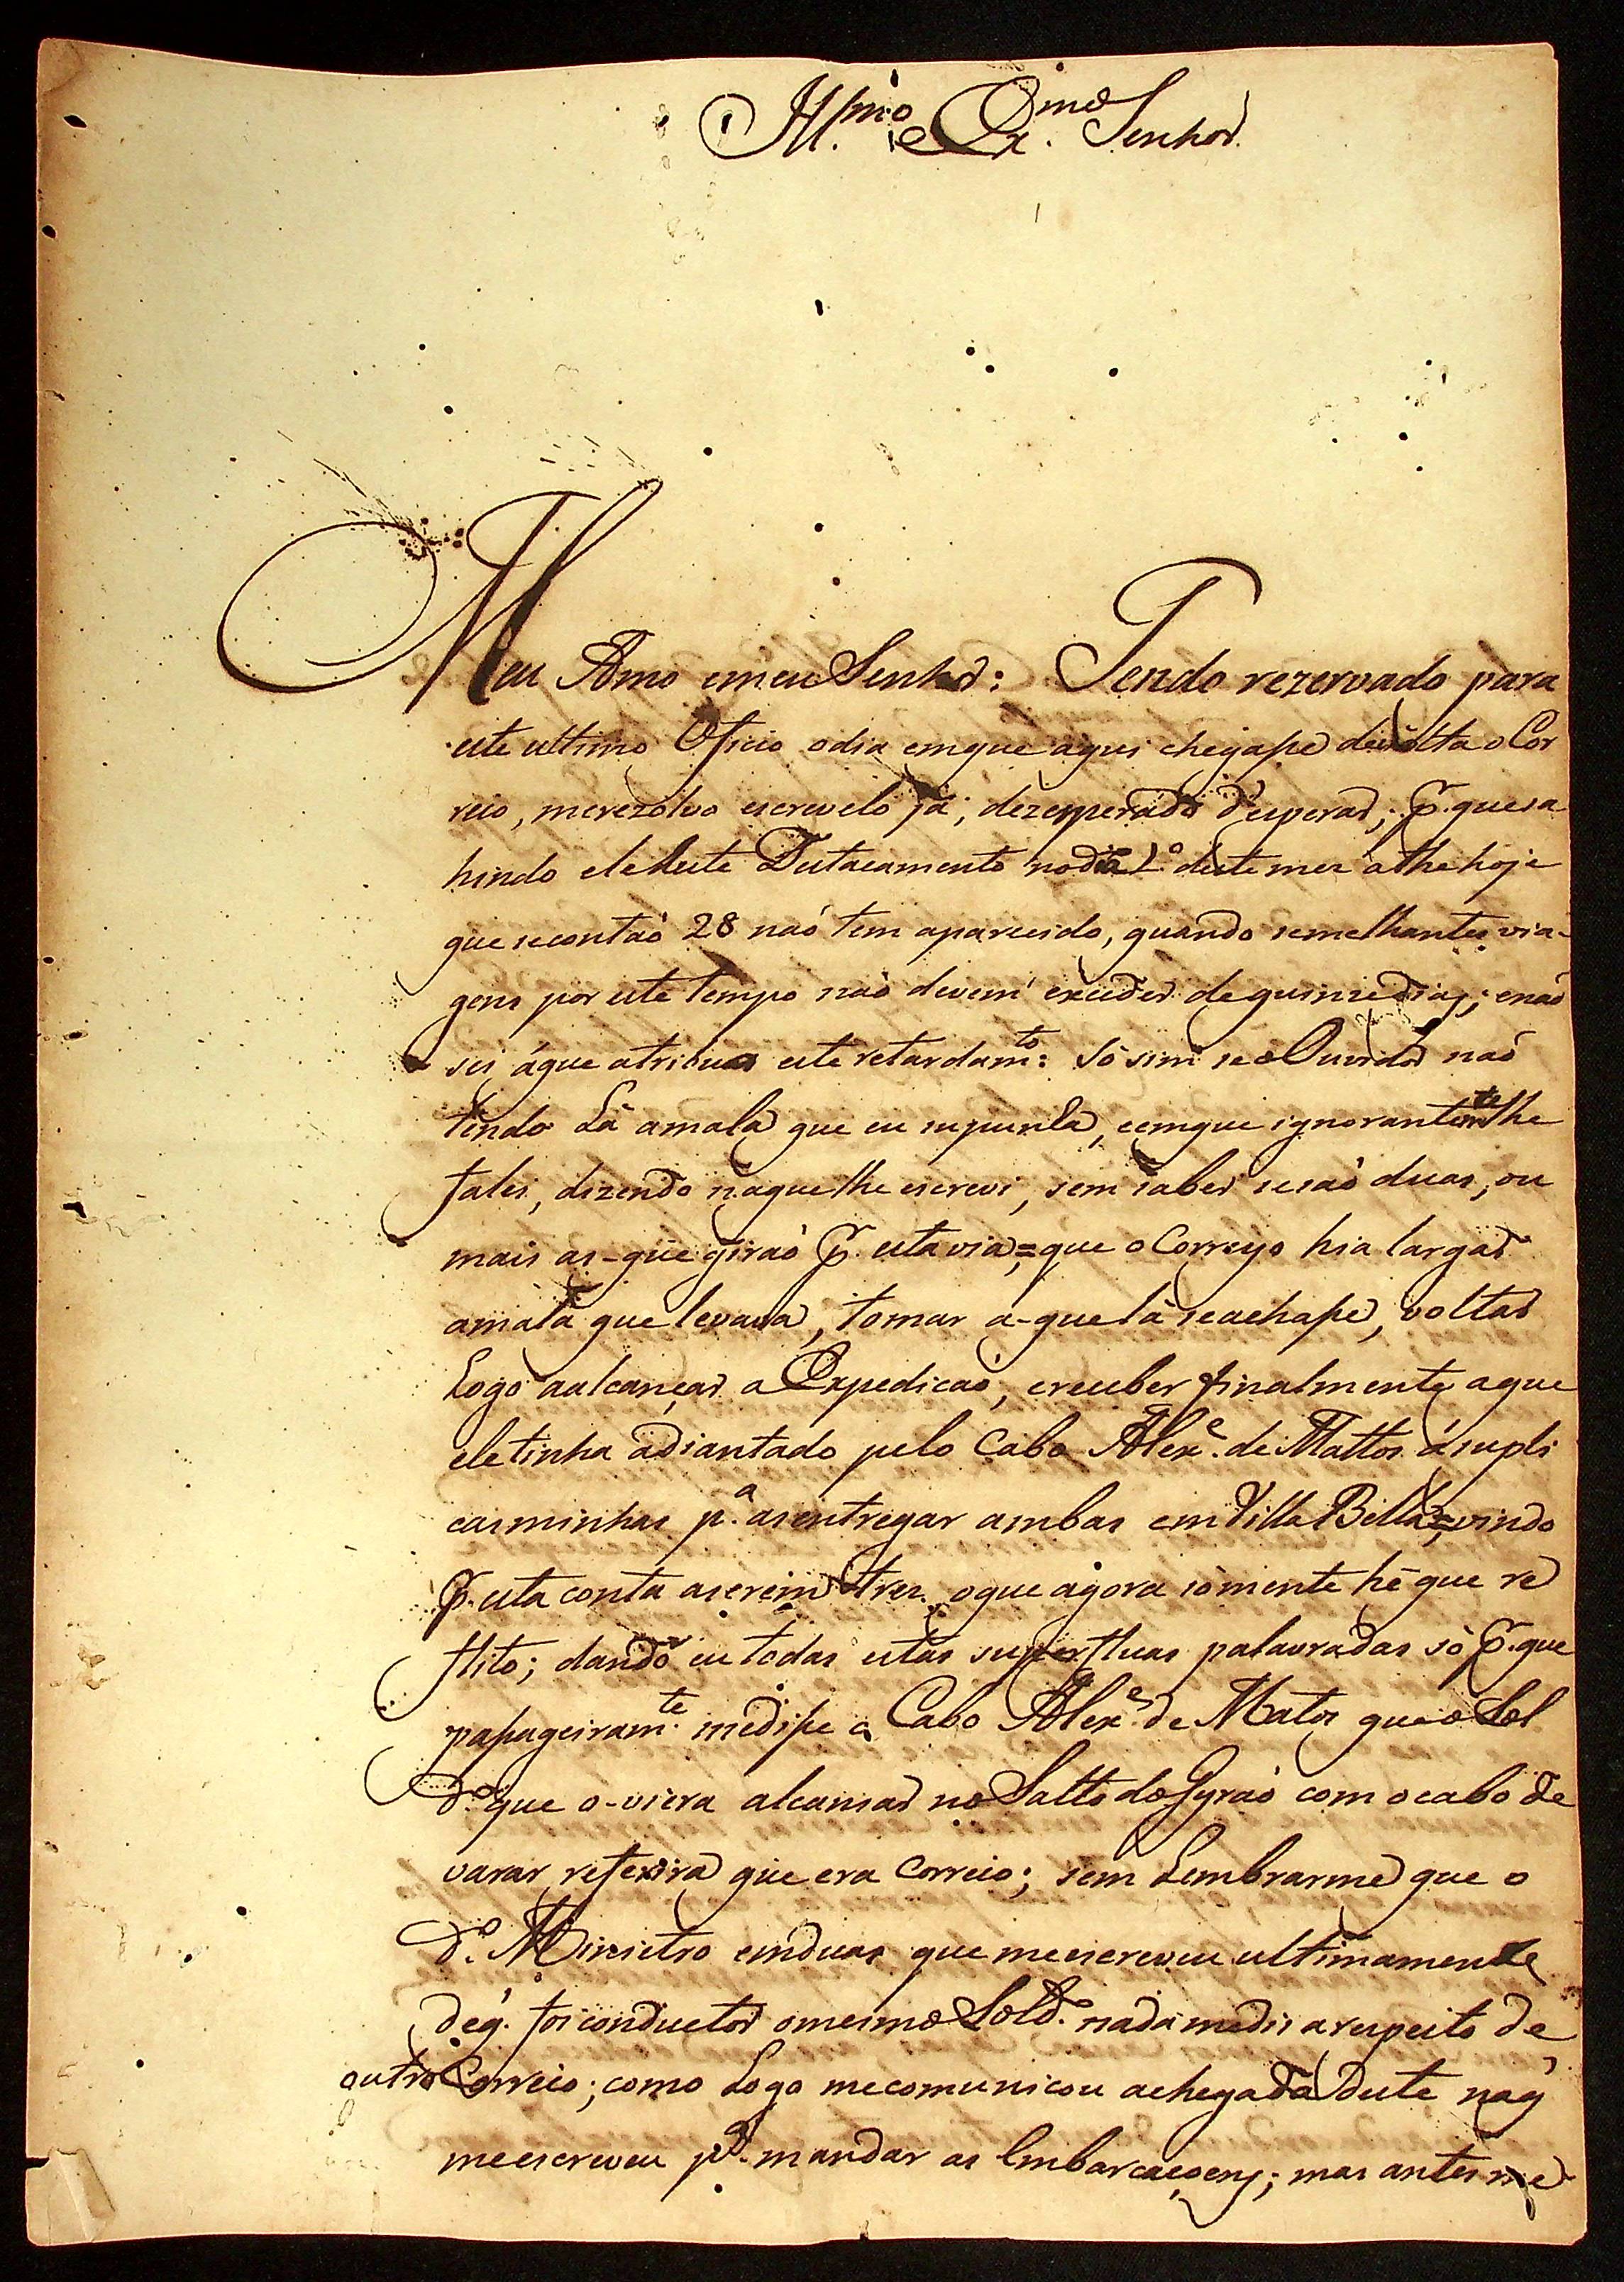 Ill.mo e Ex.mo Senhor
Meu Amo emeu Senhor: Tendo rezervado para
este ultimo Oficio odia emque aqui chegasse devolta o Cor
reio, merezolvo escrevelo já, dezesperado d'esperar; p.r quesa
hindo eledeste Destacamento nodia 1.o destemez athe hoje
que secontaõ 28 naõ tem aparecido, quando semelhantes via-
gens por este tempo naõ devem exceder dequinzedias; enaõ
sei áque atribua este retardam.to: sô sim seoOuvidor naõ
tendo Lá amala que eu supunha, eemque ignorantem.te lhe
falei, dizendo naque lhe escrevi, sem saber sesaõ duas, ou
mais as-que giraõ p.r estavia,=que oCorreyo hia largar
amala que levava, tomar a-que lâ seachasse, voltar
Logo aalcançar a Expedicaõ, ereceber finalmente aque
eletinha adiantado pelo Cabo Alex.e de Mattos ásupli
casminhas p.a asentregar ambas em Villa Bella=, vindo
p.r esta conta aserem tres. oque agora sômente hê que re
flito; dando eu todas estas superfluas palavradas sô p.r que
papageiram.te medisse o Cabo Alex.e de Matos queo Sol
d.o que o-viera alcansar no Salto doGyraõ com ocabo de
varar referira que era Correio; sem Lembrarme que o
d.o Ministro emduas que meescreveu ultimamente
deq. foi conductor omesmo Sold.o nadamediz arespeito de
outro Correio; como Logo mecomunicou achegada deste naq
meescreveu p.a mandar as Embarcaçoens; mas antes me